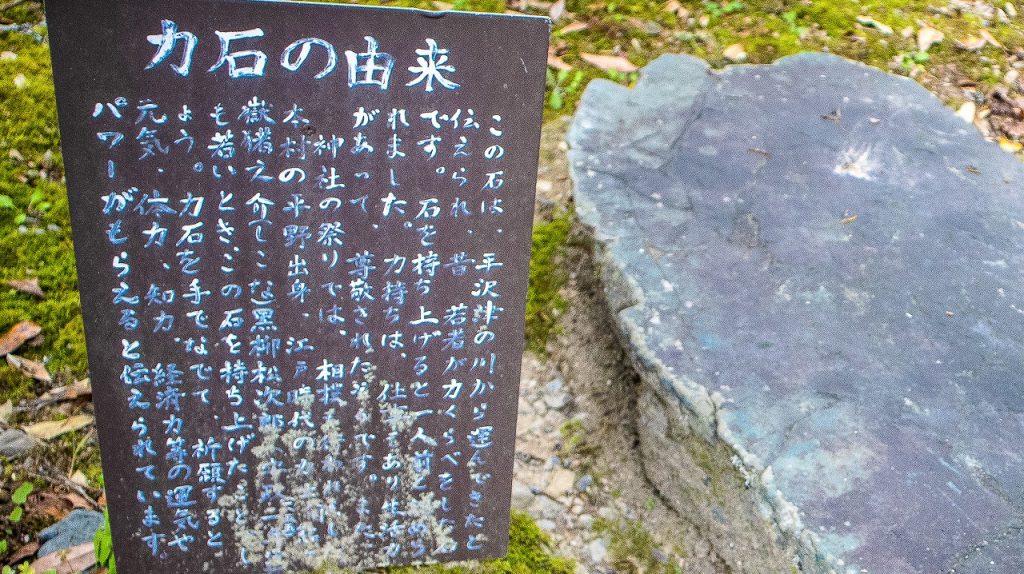 力石の由来
この石は、平沢津の川から運んできたと
伝えられ、昔 若者が力くらべをした
です。石を持ち上げると一人前と
れました。力持ちは、仕事
があって、尊敬された そうです。また
神社の祭りでは、相撲
本村の平野出身、江戸時代の
嶽猪之介 黒柳松次郎
も若いときこの石を持ち上げた
よう。力石を手でなでて、祈願すると
元気、体力、知力、経済力等の運気や
パワーがもらえると伝えられています